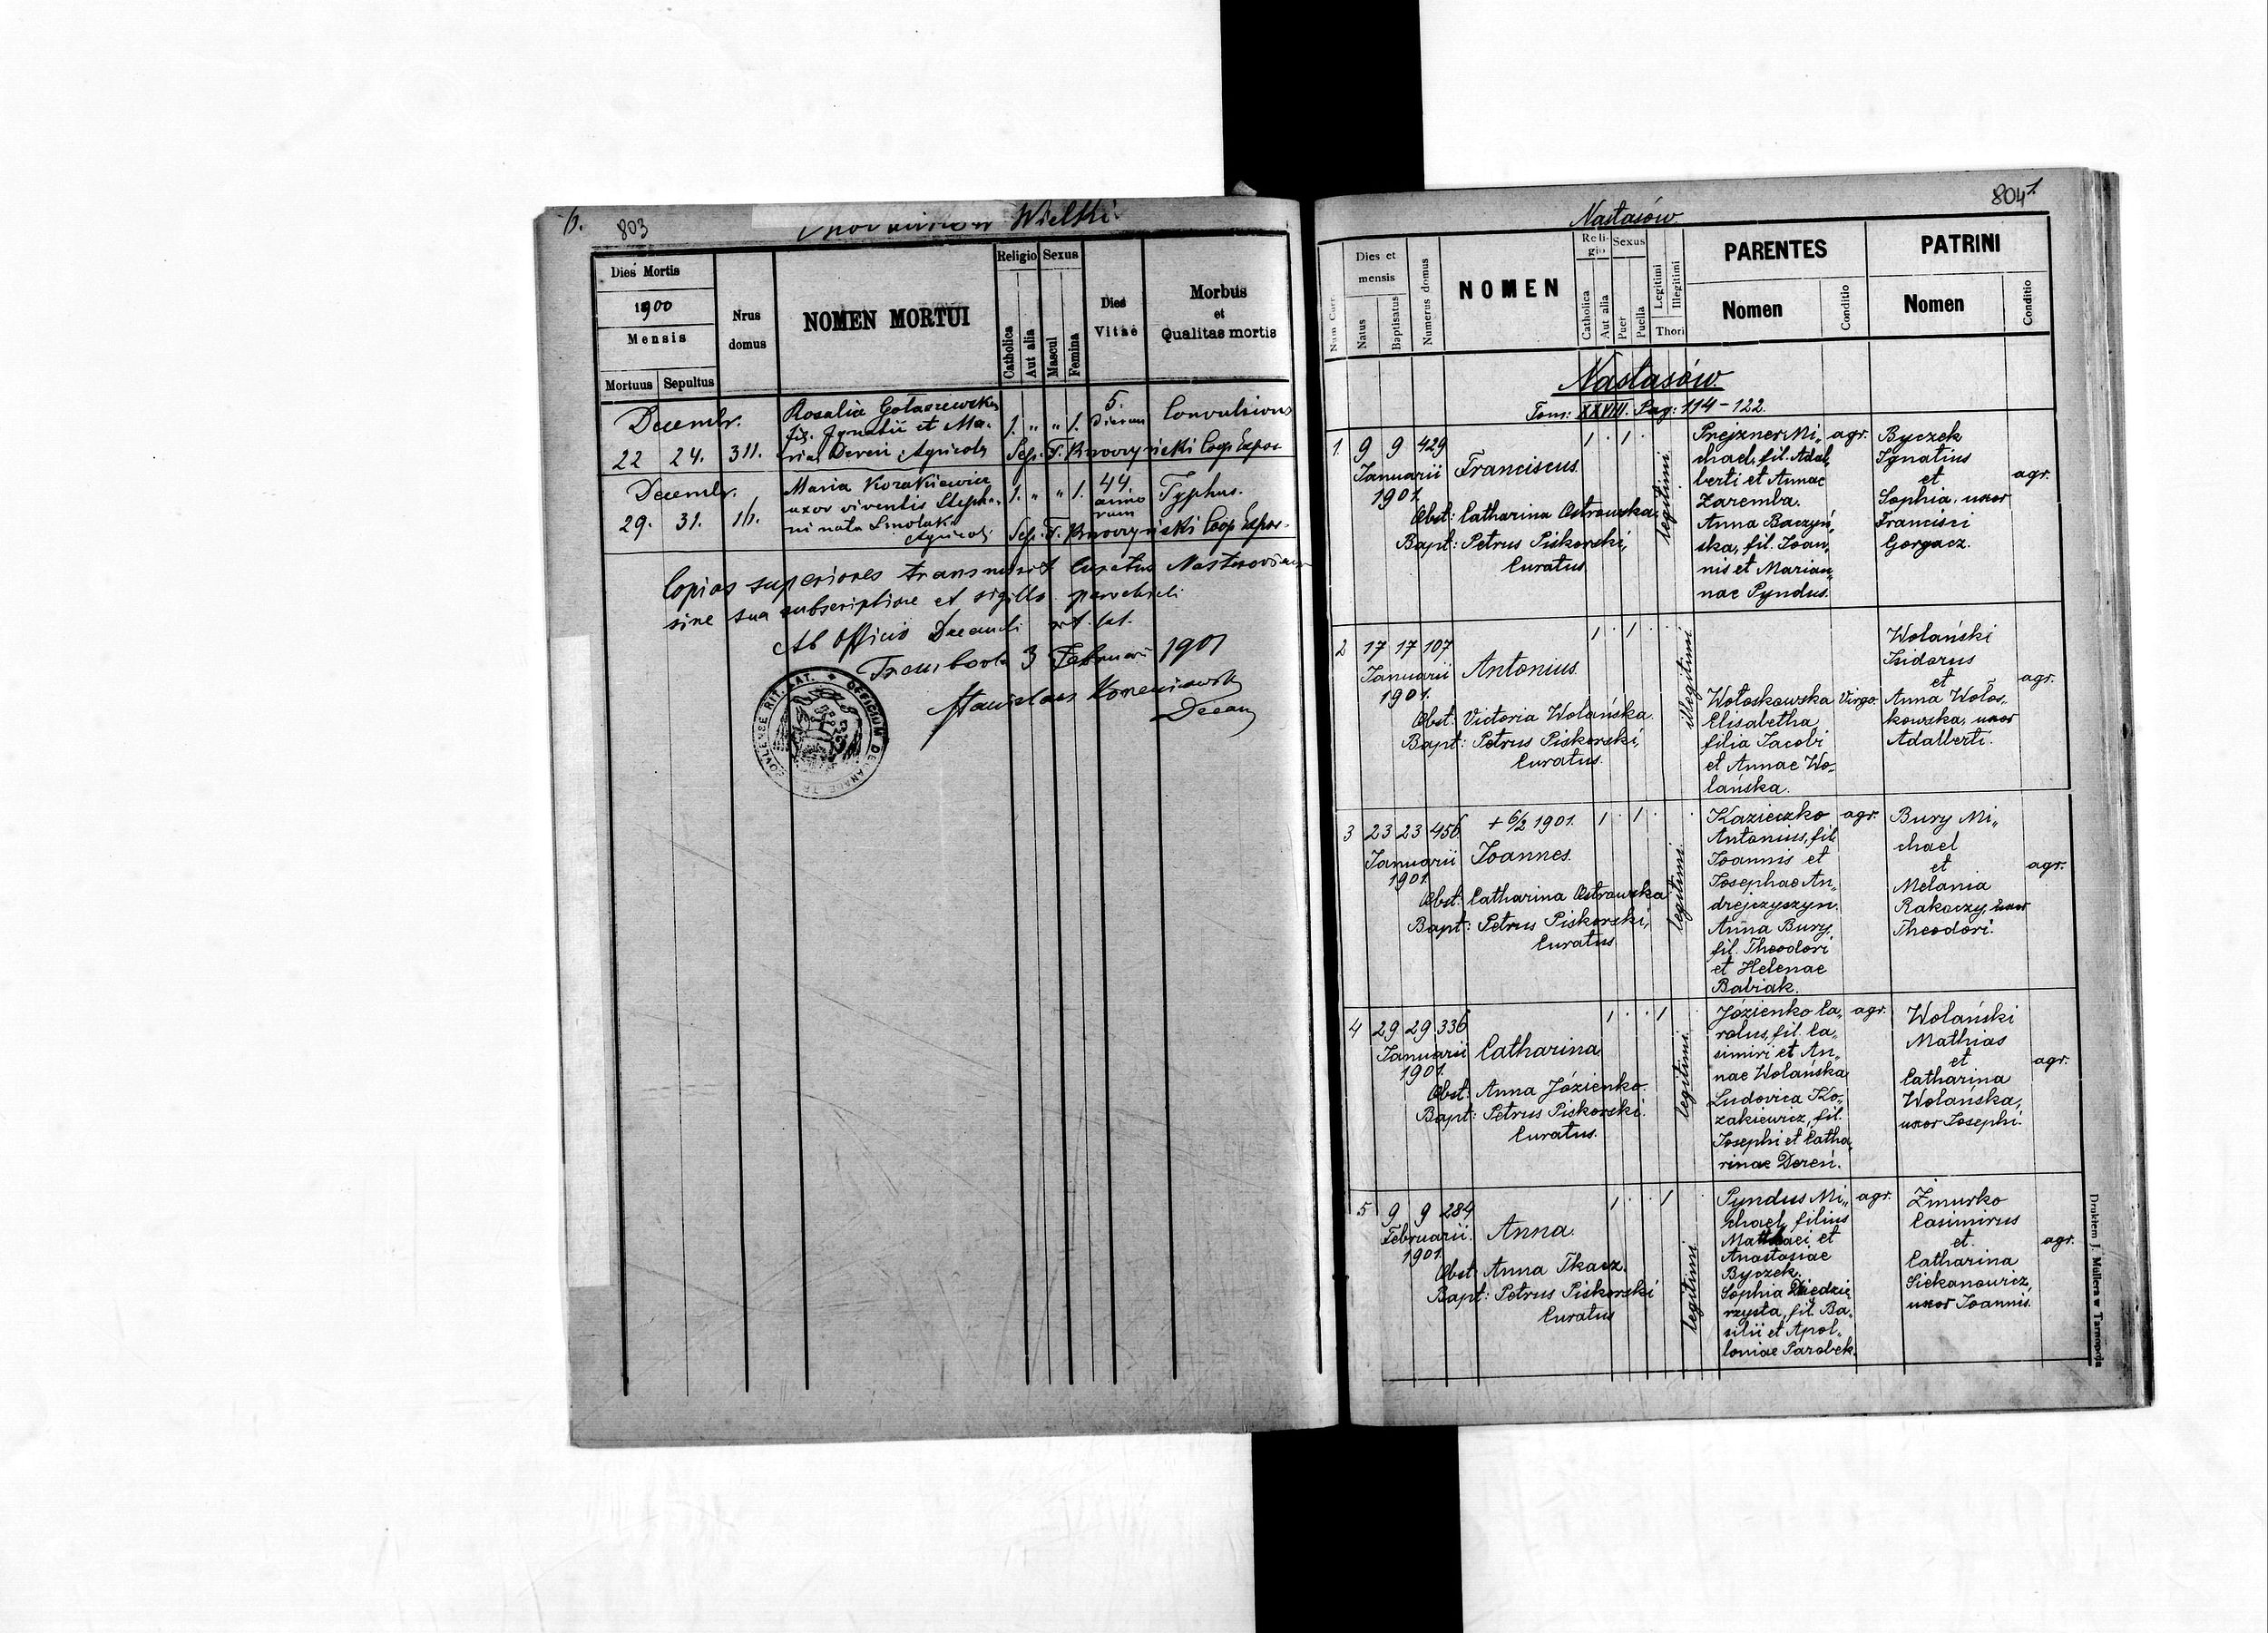 6.
803
Wielki
Dies Mortis
1900
Mensis
Mortuus Sepultus
Nrus domus
NOMEN MORTUI
Religio
Catholica
Aut alia
Sexus
Mascul
Femina
Dies Vitae
Morbus
et
Qualitas mortis
Decembr.
22 24. 311.
Rosalia
fil. Ignatii et Ma-
riae Dereń Agricola
1. " " 1.
5.
dierum
Convulsiones
Sep. F. Coop. Expos
Decembr.
29. 31. 16.
Maria Kozakiewicz
uxor viventis Stepha-
ni nata Smolak
Agricola
1. " " 1.
44.
anno
rum
Typhus.
Sep. F. Coop. Expos-
Copias superiores transmisit Curatus
sine sua subscriptione et sigillo parochiali
Ab Officio Decanali rit. lat.
Trembowla 3 Februarii 1901
Stanislaus
Decan
OFFICIUM DECANALE TREMBOVLENSE RIT. LAT.
804
1.
Nastasów.
Num Curr.
Dies et mensis
Natus
Baptisatus
Numerus domus
NOMEN
Reli-
gio
Catholica
Aut alia
Sexus
Puer
Puella
Legitimi
Illegitimi
Thori
PARENTES
Nomen
Conditio
PATRINI
Nomen
Conditio
Nastasów.
Tom: XXVIII. Pag: 114-122.
1. 9 9 429
Januarii
1901.
Franciscus.
Obst: Catharina Ostrowska.
Bapt: Petrus Piskorski,
Curatus
1 . 1 .
legitimi
Prejzner Mi„
chael, fil. Adal„
berti et Annae
Zaremba.
Anna Baczyń„
ska, fil. Joan„
nis et Marian„
nae Pyndus.
agr.
Byczek
Ignatius
et
Sophia, uxor
Francisci
Gorgacz.
agr.
2 17 17 107
Januarii
1901.
Antonius.
Obst: Victoria Wolańska.
Bapt: Petrus Piskorski,
Curatus.
1 . 1 .
illegitimi
Wołoskowska
Elisabetha
filia Jacobi
et Annae Wo„
lańska.
Virgo.
Wolański
Isidorus
et
Anna Wołos„
kowska, uxor
Adalberti.
agr.
3 23 23 456
Januarii
1901.
+ 6/2 1901.
Joannes.
Obst: Catharina Ostrowska
Bapt: Petrus Piskorski,
Curatus
1 . 1 .
legitimi.
Kazieczko
Antonius, fil.
Joannis et
Josephae An„
drejczyszyn.
Anna Bury,
fil. Theodori
et Helenae
Babiak.
agr.
Bury Mi„
chael
et
Melania
Rakoczy, uxor
Theodori.
agr.
4 29 29 336
Januarii
1901.
Catharina
Obst: Anna Józienko.
Bapt: Petrus Piskorski.
Curatus.
1 . . 1
legitimi.
Józienko Ca„
rolus, fil. Ca„
simiri et An„
nae Wolańska
Ludovica Ko„
zakiewicz, fil.
Josephi et Catha„
rinae Dereń.
agr.
Wolański
Mathias
et
Catharina
Wolańska,
uxor Josephi.
agr.
5 9 9 284
Februarii.
1901.
Anna.
Obst: Anna Tkacz.
Bapt: Petrus Piskorski
Curatus
1 . . 1
legitimi
Pyndus Mi„
chael, filius
Mathaei et
Anastasiae
Byczek.
Sophia Dziedzie
rzysta, fil. Ba„
silii et Apol„
loniae Parobek.
agr.
Żmurko
Casimirus
et.
Catharina
Siekanowicz,
uxor Joannis.
agr.
Drukiem J. Müllera w Tarnopolu